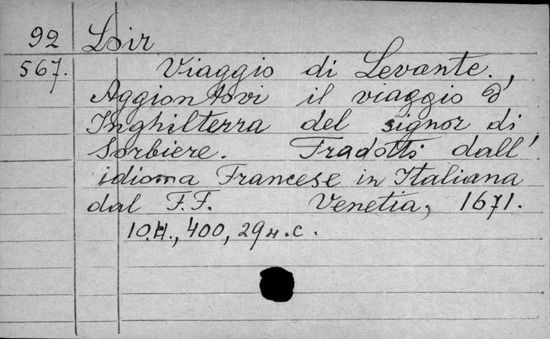 92 Loir
567. Viaggio di Levante.
Aggiontovi il viaggio d'
Inghilterra del signor di
Sorbiere. Tradotti dall'
idioma Francese in Italiana
dal F.F. Venetia, 1671.
10.H., 400, 29н.с.